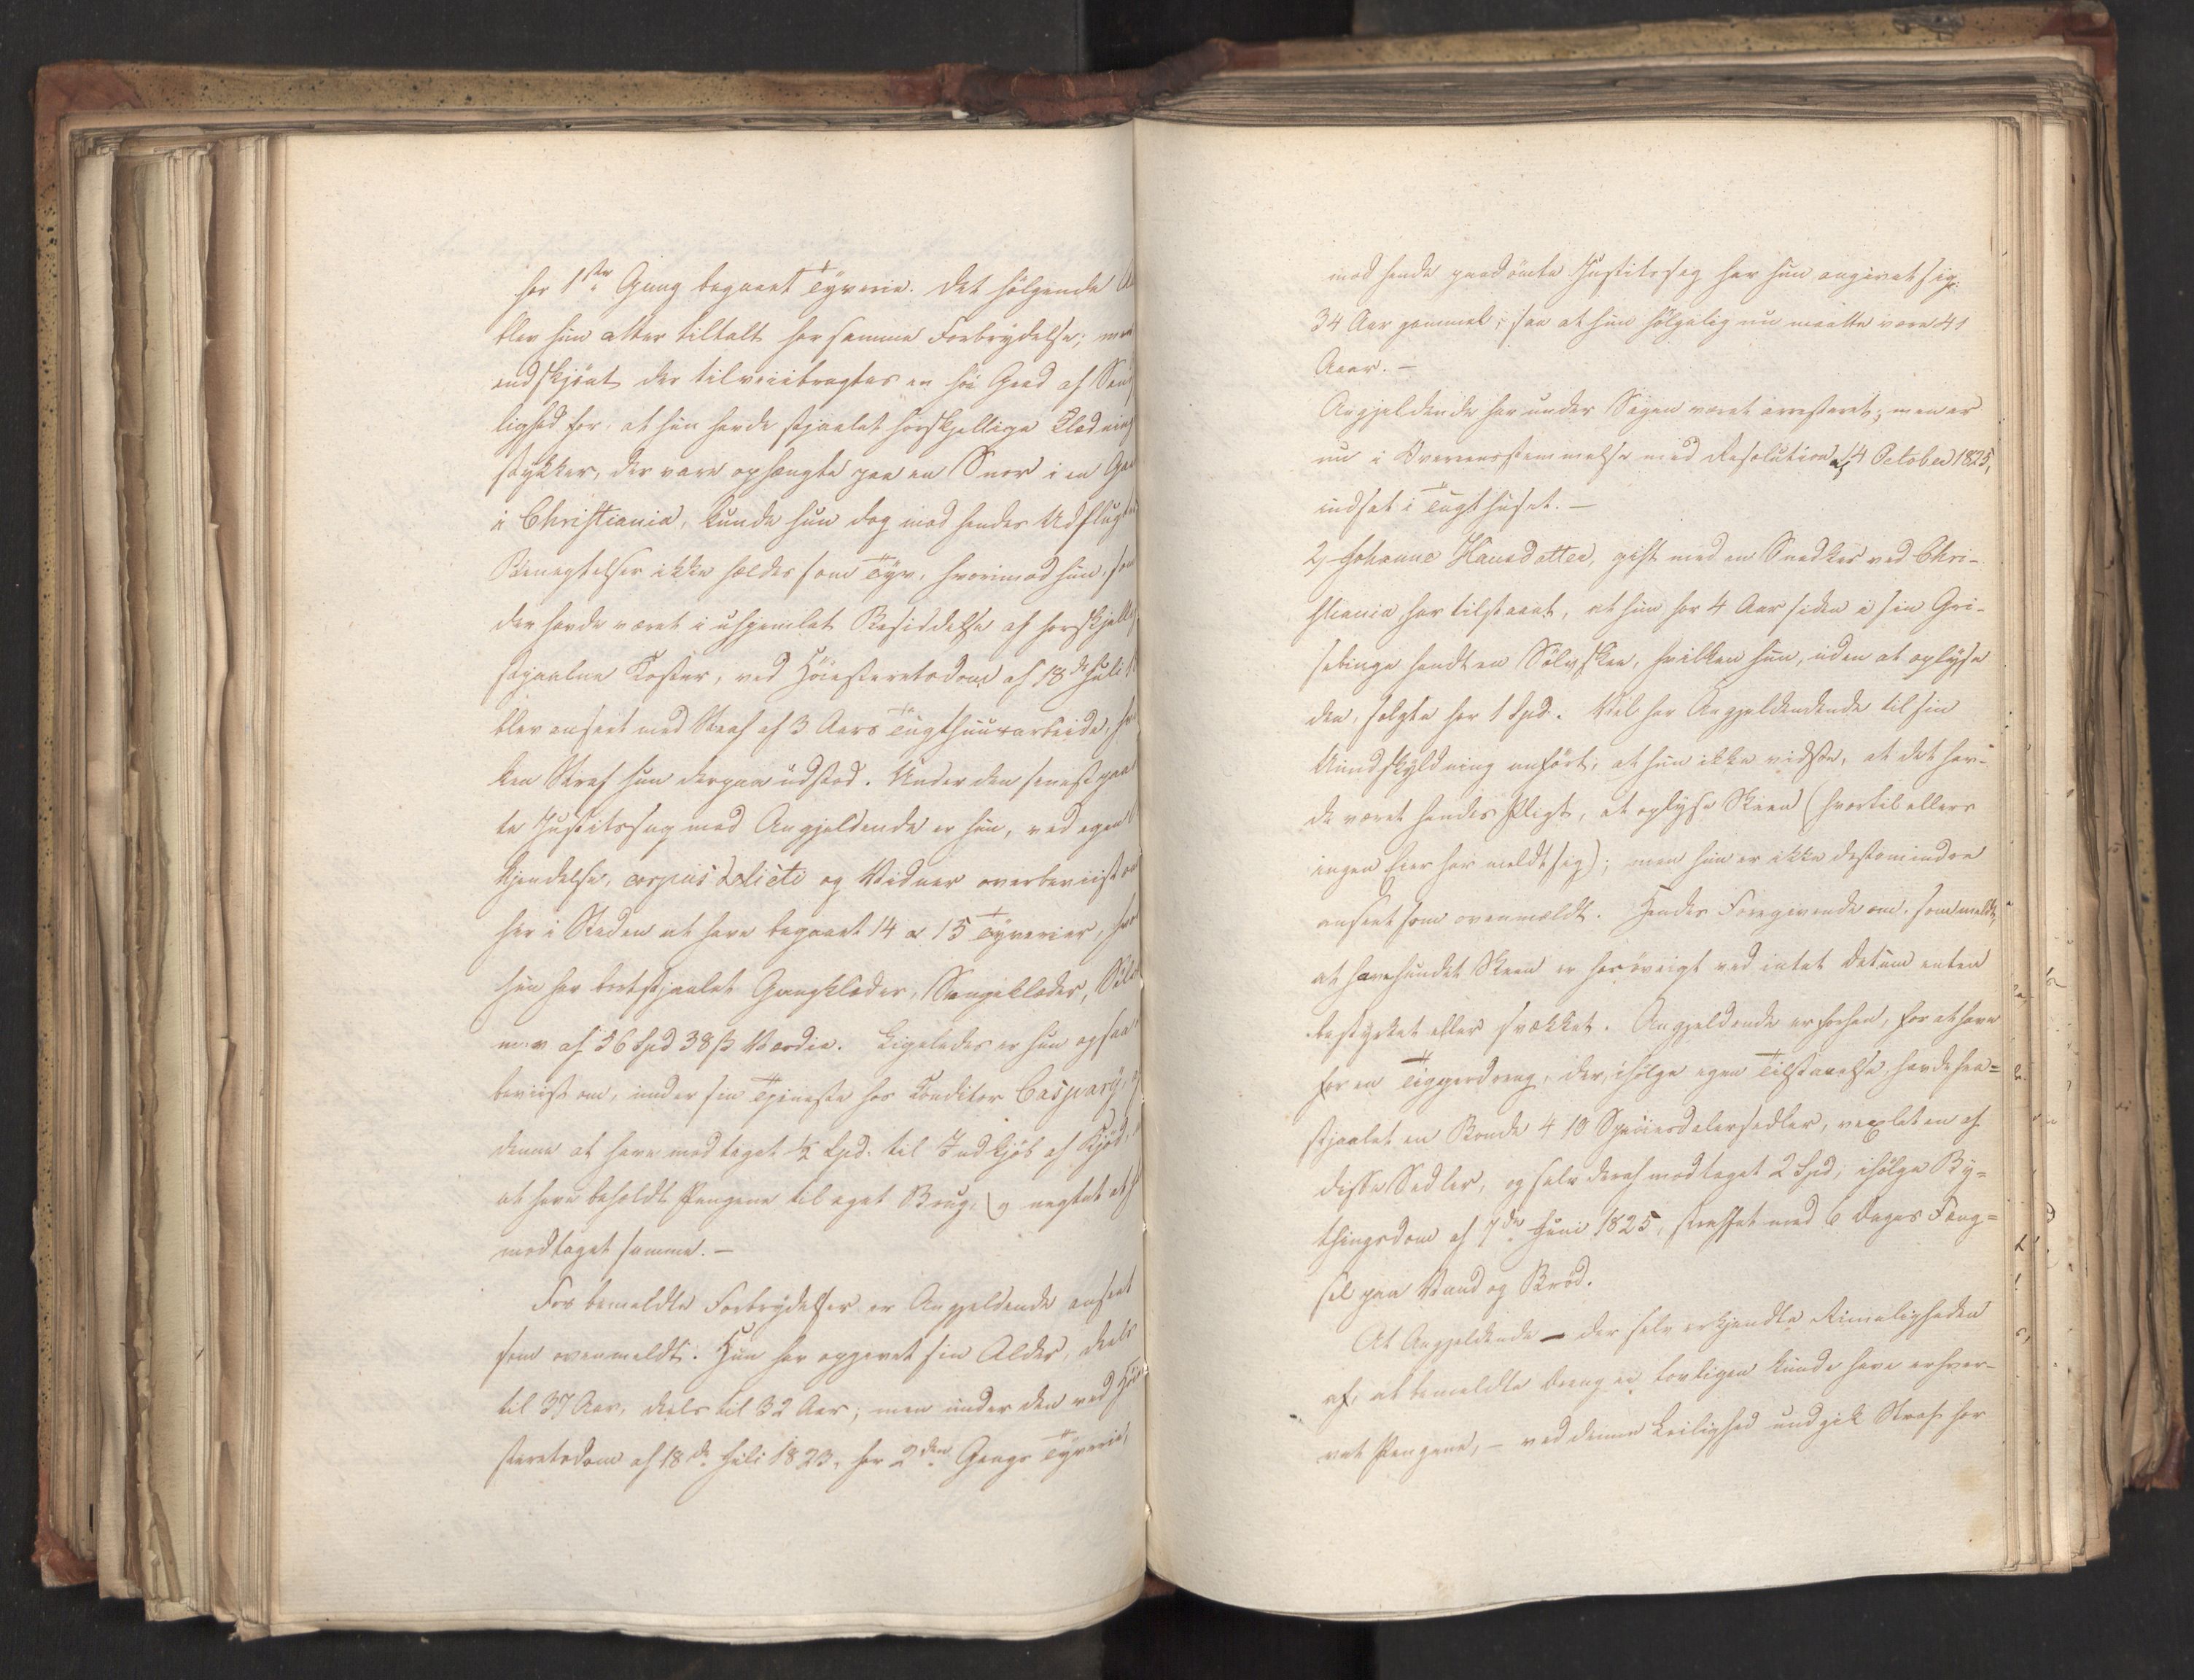 for 1ste Gang begaaet Tyverie. Det følgende
blev hun atter tiltalt for samme Forbrydelse; men
endskjønt der tilveiebragtes en høi Grad af
lighed for, at hun havde stjaalet forskjellige Klædnings
stykker, der vare ophængte paa en Snor i en
i Christiania, kunde hun dog mod hendes Udflugter
Benægtelser ikke fældes som Tyv, hvorimod hun, som
der havde været i uhjemlet Besiddelse af forskjellige
stjaalne Koster, ved Høiesteretsdom af 18de Juli
blev anseet med Straf af 3 Aars Tugthuusarbeide,
ken Straf hun derpaa udstod. Under den senest paa
te Justitssag mod Angjeldende er hun, ved egen
kjendelse, corpus delicti og Vidner overbeviist om
her i Staden at have begaaet 14 a 15 Tyverier,
hun har bortstjaalet Gangklæder, Sengeklæder,
m.v. af 56 Spd 38 ß Værdie. Ligeledes er hun
beviist om, under sin Tjeneste hos Conditor Caspary,
denne at have modtaget ½ Spd. til Indkjøb af Kjød,
at have beholdt Pengene til eget Brug, og negtet at
modtaget samme. —
For bemeldte Forbrydelser er Angjeldende anseet
som ovenmeldt. Hun har opgivet sin Alder, deels
til 37 Aar, deels til 32 Aar; men under den ved Høie
steretsdom af 18de Juli 1823, for 2den Gangs Tyverie,
mod hende paadømte Justitssag har hun angivet sig
34 Aar gammel; saa at hun følgelig nu maatte være 41
Aar. —
Angjeldende har under Sagen været arresteret; men er
nu i Overensstemmelse med Resolution af 14 October 1825,
indsat i Tugthuset. —
2, Johanne Hansdatter, gift med en Snedker ved Chri-
stiania, har tilstaaet, at hun for 4 Aar siden i sin Gri-
sebinge fandt en Sølvskee, hvilken hun, uden at oplyse
den, solgte for 1 Spd. Vel har Angjeldendende til sin
Undskyldning anført, at hun ikke vidste, at det hav-
de været hendes Pligt, at oplyse Skeen (hvortil ellers
ingen Eier har meldt sig); men hun er ikke destomindre
anseet som ovenmeldt. Hendes Foregivende om, som meldt,
at have fundet Skeen er forøvrigt ved intet Datum enten
bestyrket eller svækket. Angjeldende er forhen, for at have
for en Tiggerdreng, der, ifølge egen Tilstaaelse, havde fra-
stjaalet en Bonde 4 10 Speciesdalersedler, vexlet en af
disse Sedler, og selv deraf modtaget 2 Spd, ifølge By-
thingsdom af 7de Juni 1825, straffet med 6 Dages Fæng-
sel paa Vand og Brød.
At Angjeldende — der selv erkjendte Rimeligheden
af, at bemeldte Dreng ei lovligen kunde have erhver-
vet Pengene, — ved denne Leilighed undgik Straf for